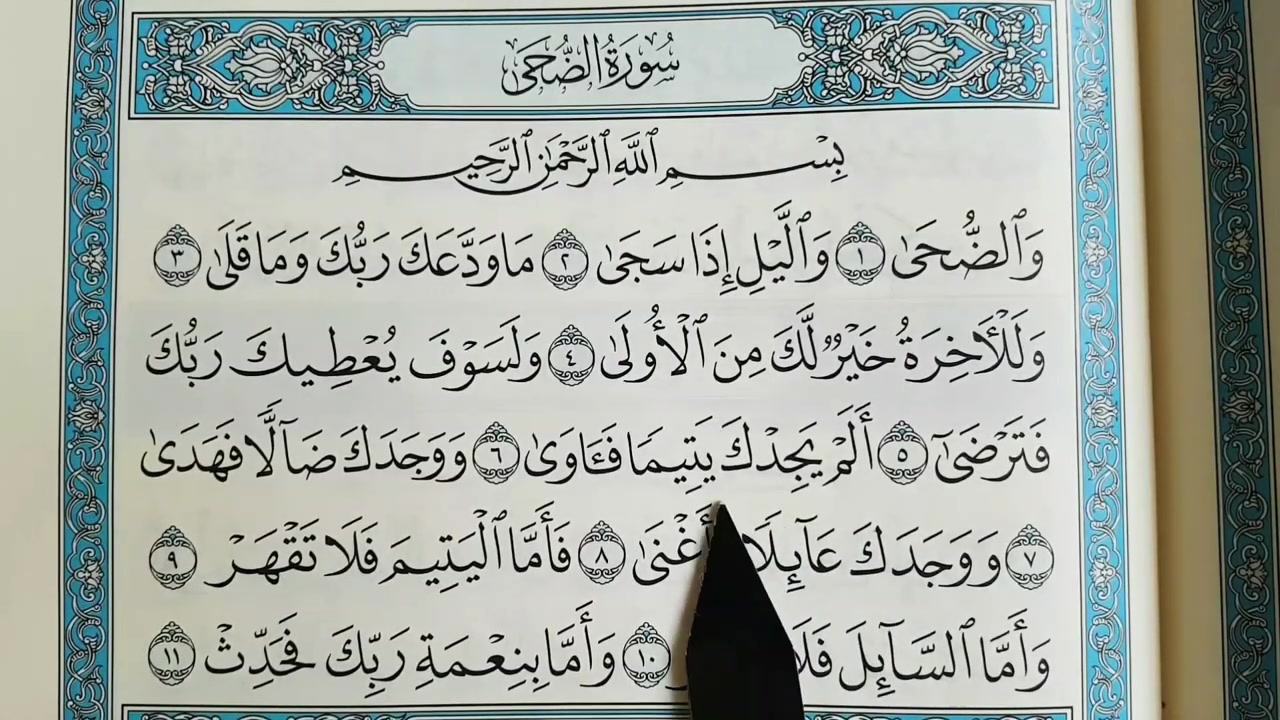 سُورَةُ الضُّحَىٰ
بِسْمِ ٱللَّهِ ٱلرَّحْمَٰنِ ٱلرَّحِيمِ
وَٱلضُّحَىٰ ١ وَٱلَّيْلِ إِذَا سَجَىٰ ٢ مَا وَدَّعَكَ رَبُّكَ وَمَا قَلَىٰ ٣
وَلَلْـَٔاخِرَةُ خَيْرٌ لَّكَ مِنَ ٱلْأُولَىٰ ٤ وَلَسَوْفَ يُعْطِيكَ رَبُّكَ
فَتَرْضَىٰٓ ٥ أَلَمْ يَجِدْكَ يَتِيمًا فَـَٔاوَىٰ ٦ وَوَجَدَكَ ضَآلًّا فَهَدَىٰ
٧ وَوَجَدَكَ عَآئِلًا أَغْنَىٰ ٨ فَأَمَّا ٱلْيَتِيمَ فَلَا تَقْهَرْ ٩
وَأَمَّا ٱلسَّآئِلَ فَلَا ١٠ وَأَمَّا بِنِعْمَةِ رَبِّكَ فَحَدِّثْ ١١